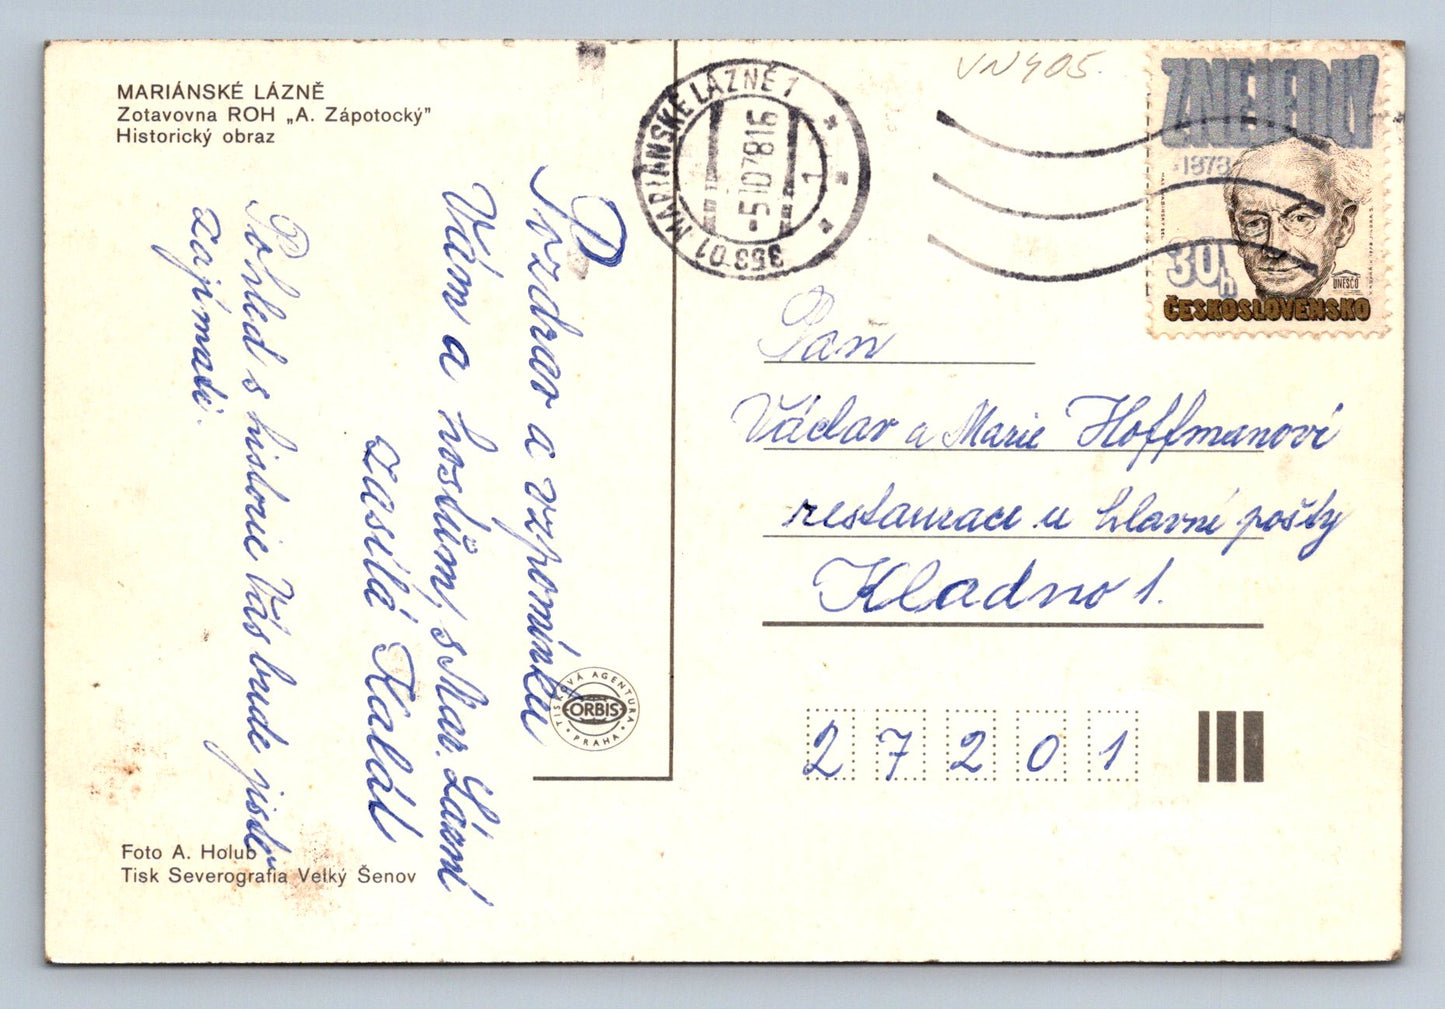 MARIÁNSKÉ LÁZNĚ
Zotavovna ROH „A. Zápotocký"
Historický obraz
Pozdrav a vzpomínku
Vám a hostům, s Mar. Lázní
zasílá Kalál
Pohled s historie Vás bude jistě
zajímati.
Foto A. Holub
Tisk Severografia Velký Šenov
TISKOVÁ AGENTURA
ORBIS
PRAHA
353 01 MARIÁNSKÉ LÁZNĚ 1
-5.10.78 16
1
VN405.
ZNEJEDLÝ
1878
30h
UNESCO
ČESKOSLOVENSKO
Paň
Václav a Marie Hoffmanoví
restaurace u hlavní pošty
Kladno 1.
2 7 2 0 1